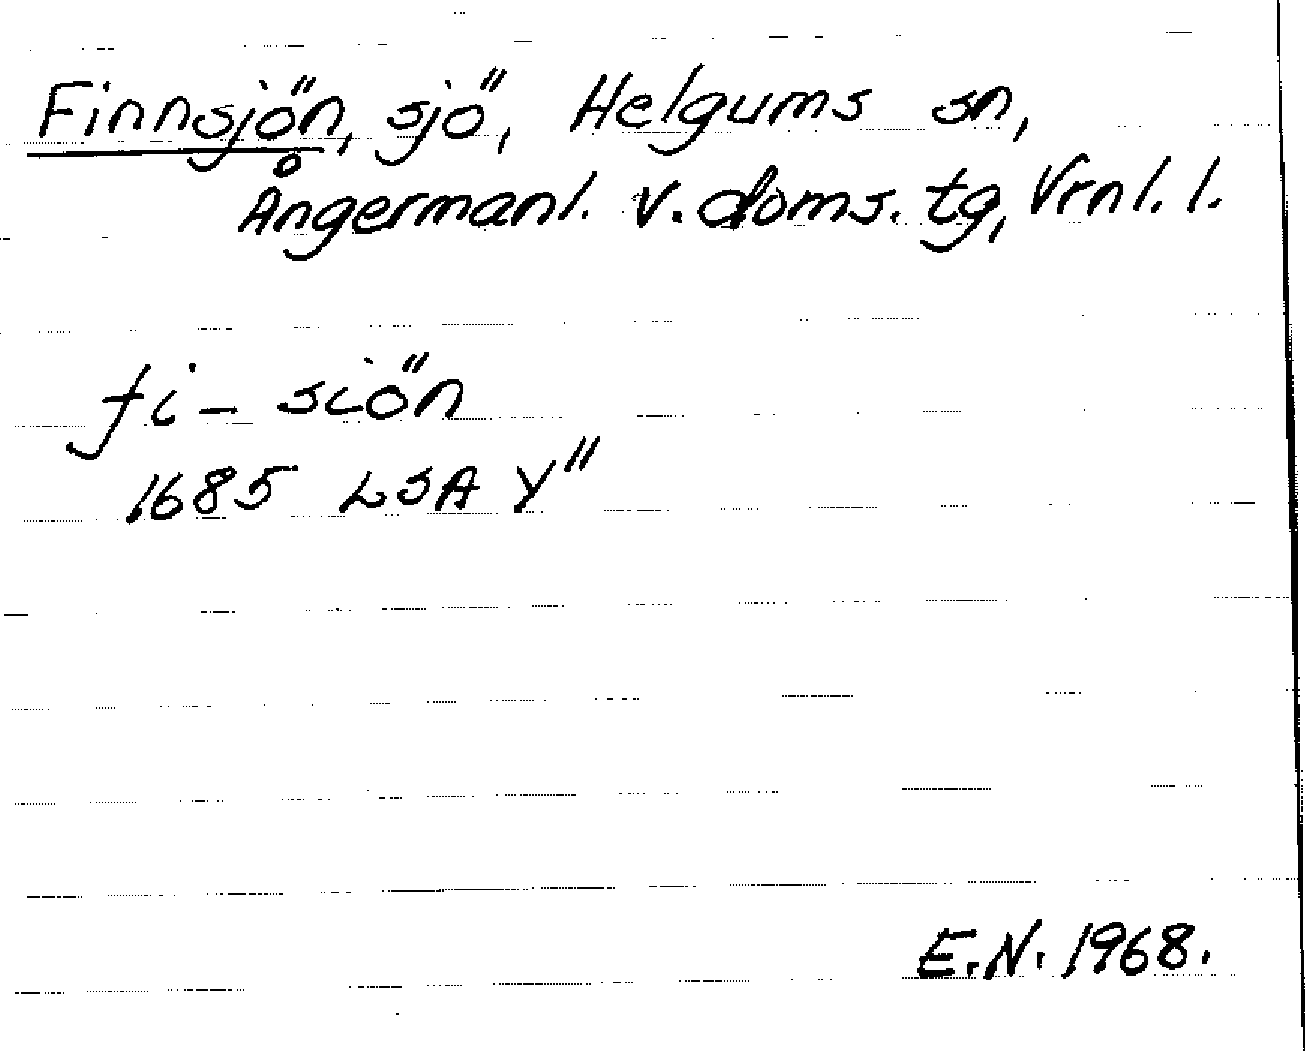 Finnsjön, sjö, Helgums sn,
Ångermanl. v. doms. tg, Vrnl. l.
fi - siön
1685 LSA Y"
E.N. 1968.